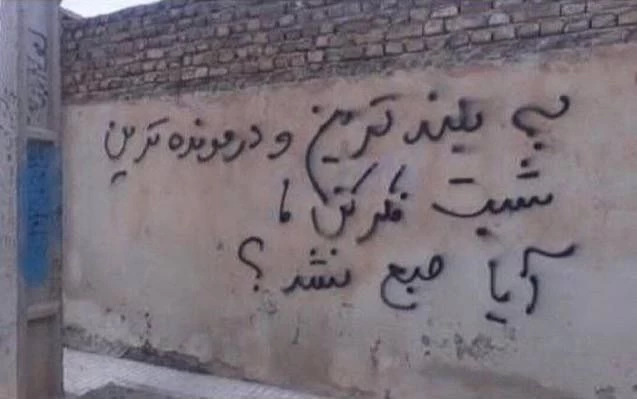 به بلند ترین و درمونده ترین
شبت فکر کن
آیا صبح نشد؟